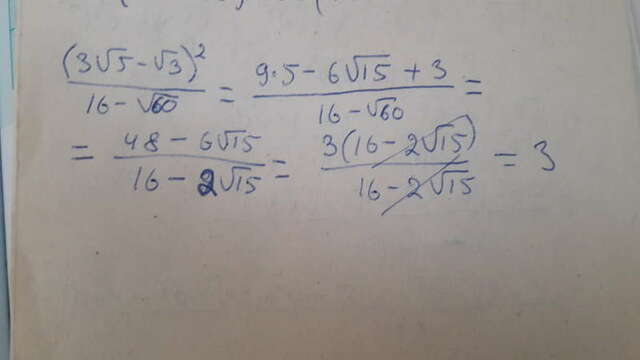 (3√5 - √3)² / 16 - √60 = 9·5 - 6√15 + 3 / 16 - √60 =
= 48 - 6√15 / 16 - 2√15 = 3(16 - 2√15) / 16 - 2√15 = 3